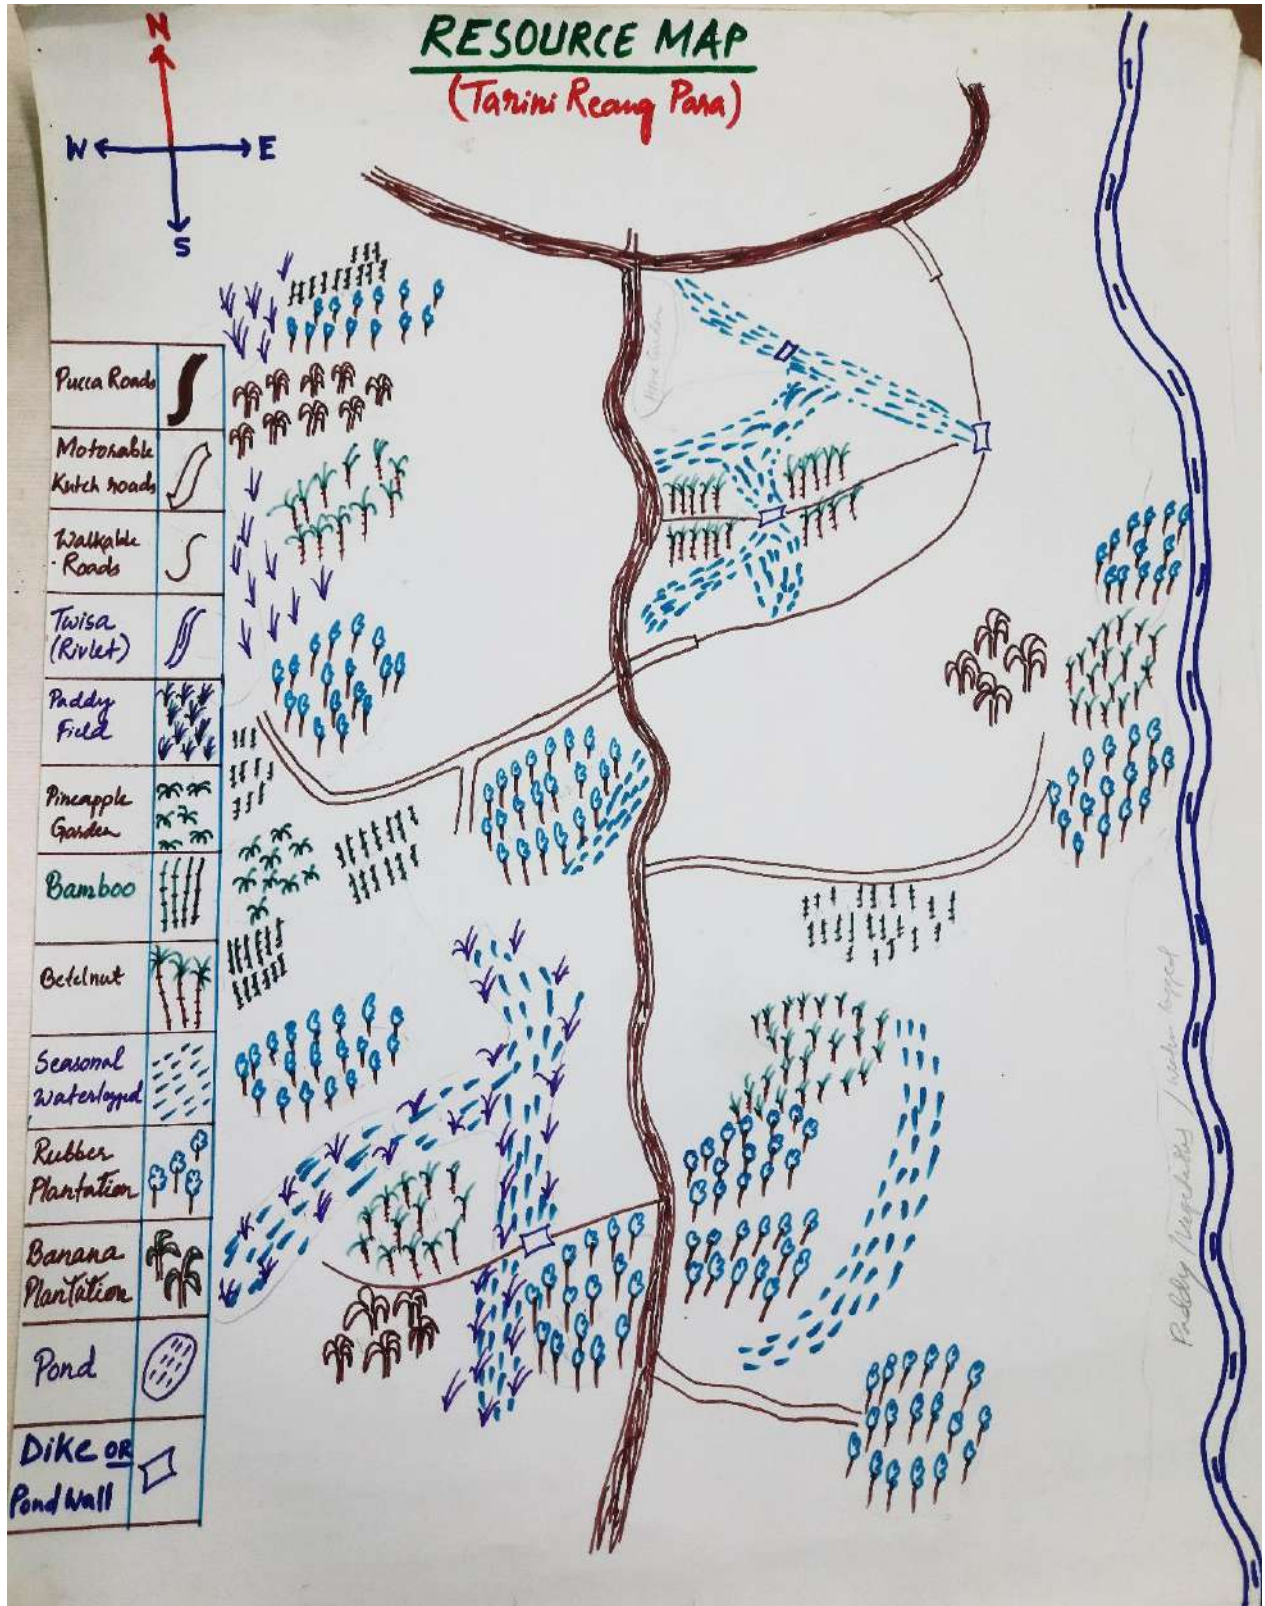 RESOURCE MAP
(Tarini Reang Para)
N
W
E
S
Pucca Roads
Motorable
Kutch roads
Walkable
Roads
Twisa
(Rivlet)
Paddy
Field
Pineapple
Garden
Bamboo
Betelnut
Seasonal
Waterlogged
Rubber
Plantation
Banana
Plantation
Pond
Dike OR
Pond Wall
Paddy Vegetables / water logged